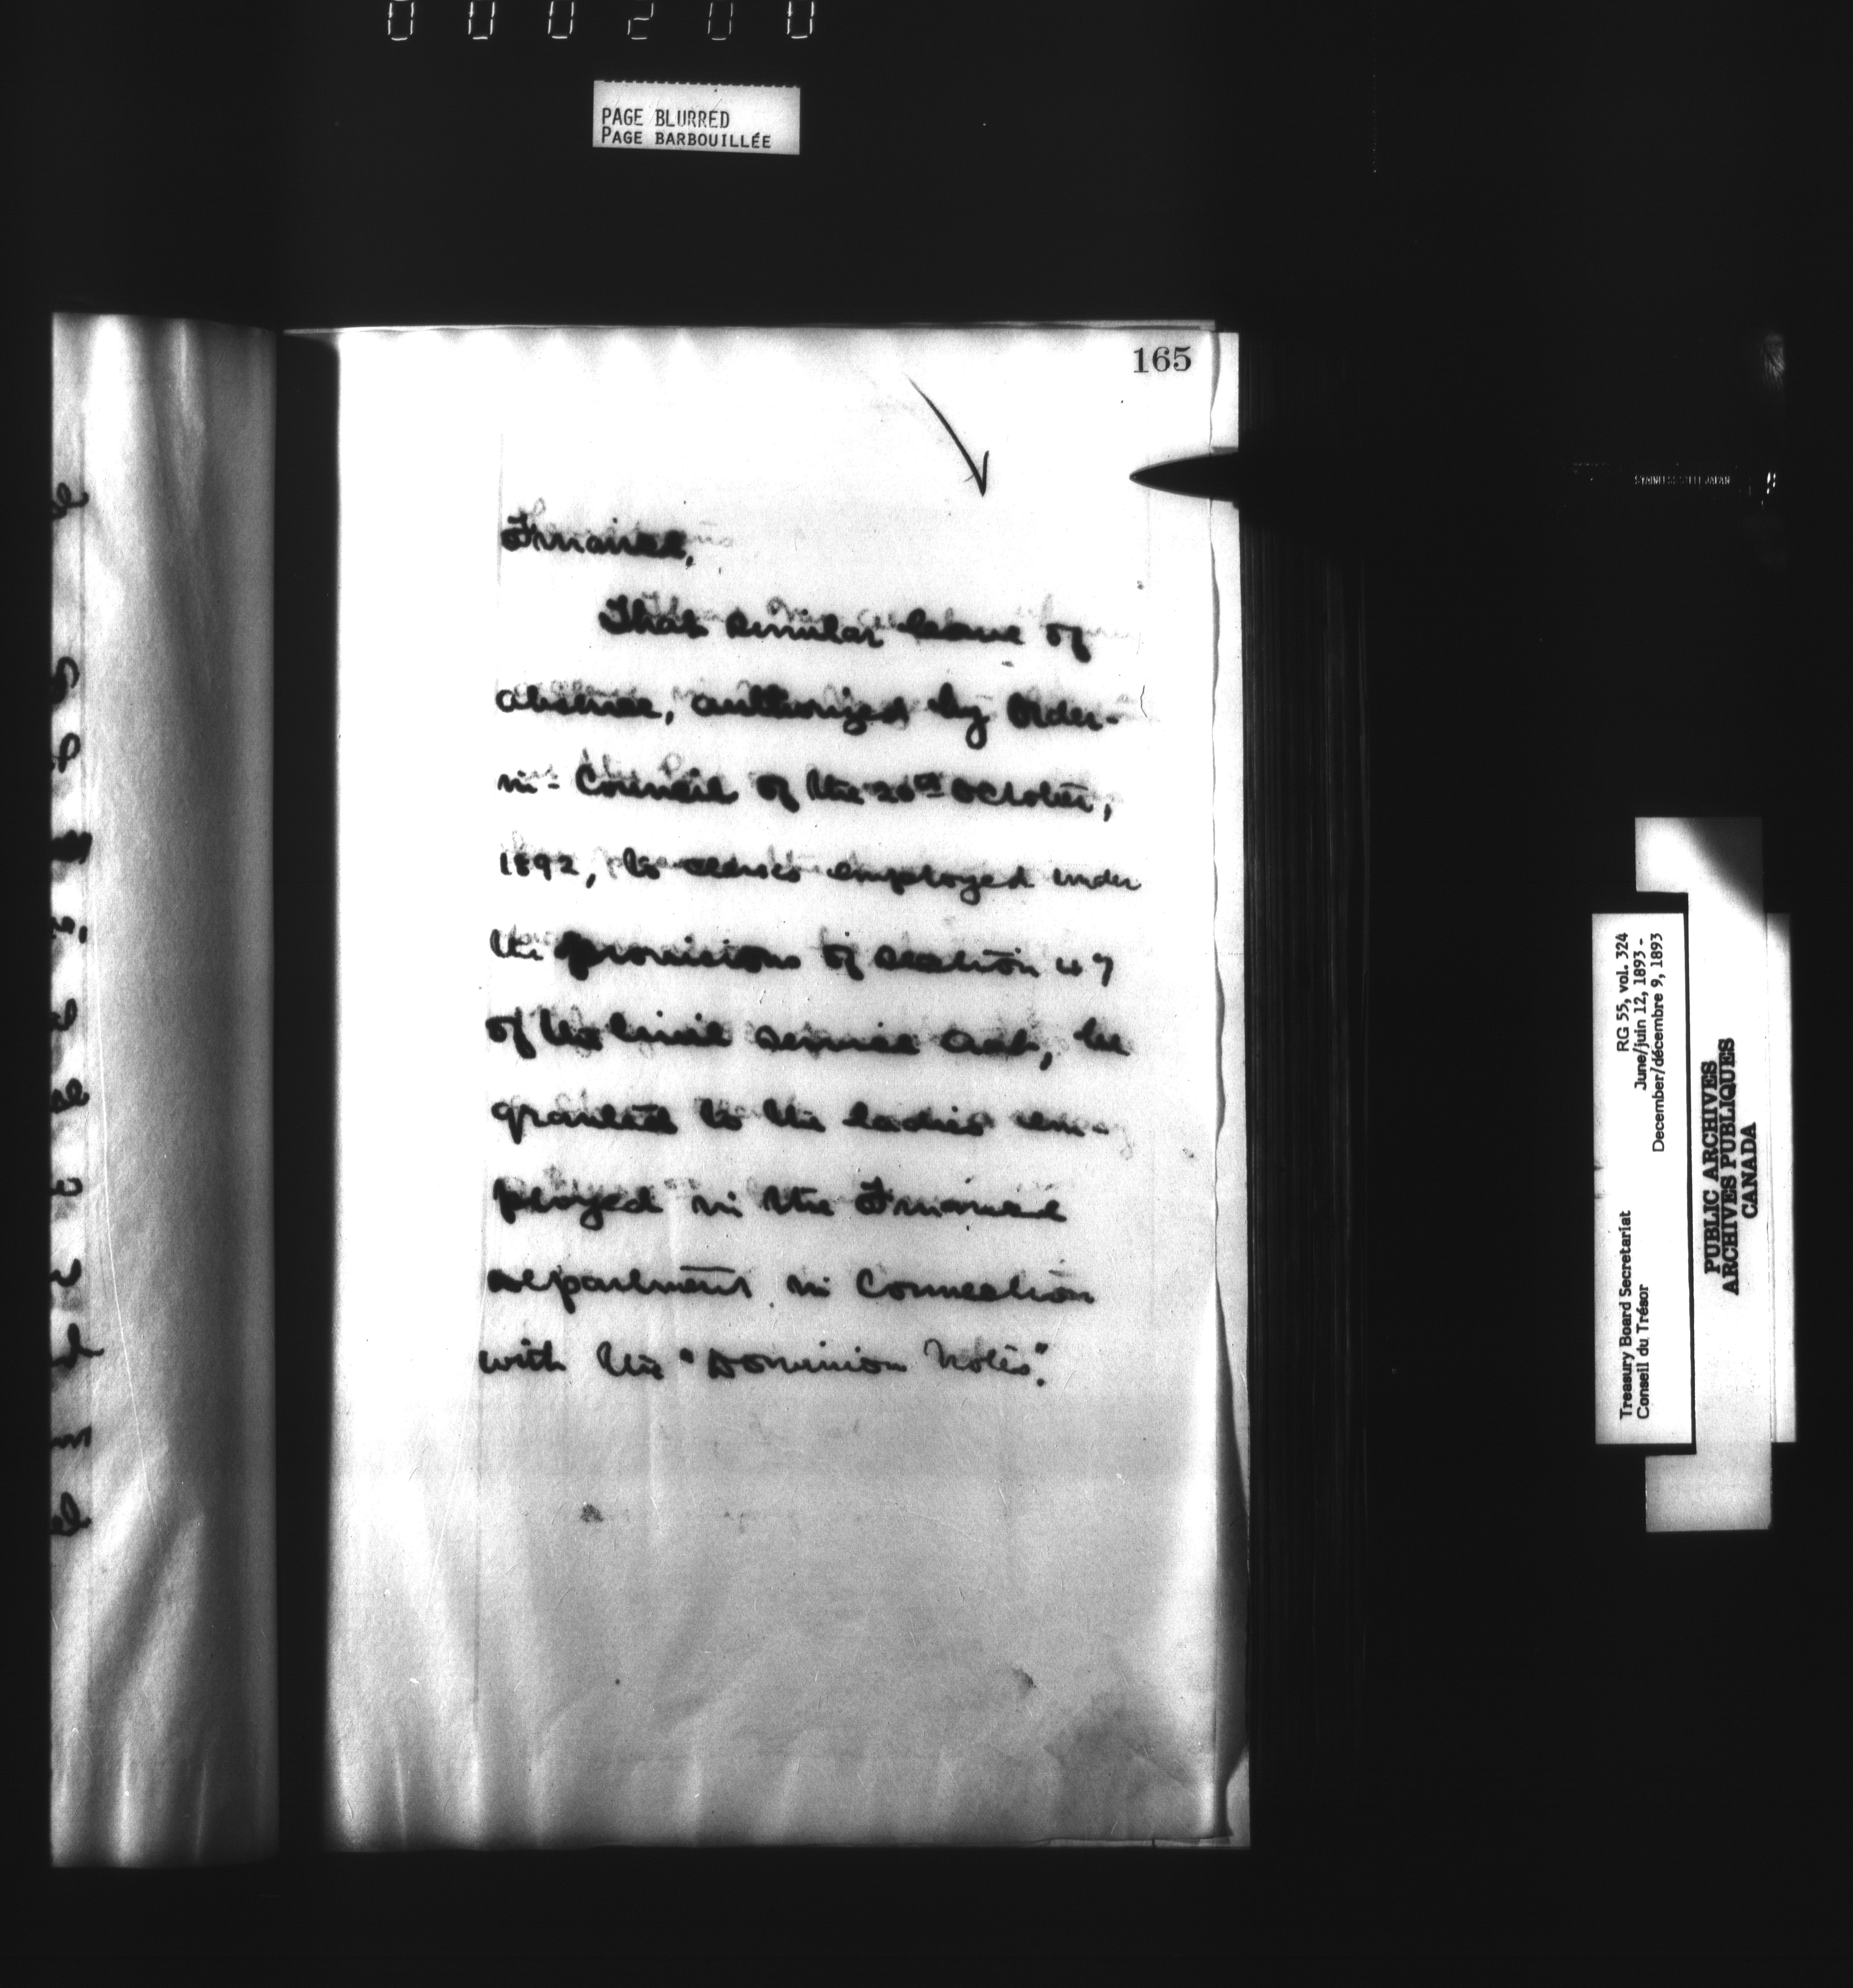 000200
PAGE BLURRED
PAGE BARBOUILLÉE
165
Finance,
That similar leave of
absence, authorized by Order-
in-Council of the 20th October,
1892, to clerks employed under
the provisions of section 47
of the Civil Service Act, be
granted to the ladies em-
ployed in the Finance
department in connection
with the "Dominion Notes".
STAINLESS STEEL JAPAN
RG 55, vol. 324
June/juin 12, 1893 -
December/décembre 9, 1893
Treasury Board Secretariat
Conseil du Trésor
PUBLIC ARCHIVES
ARCHIVES PUBLIQUES
CANADA